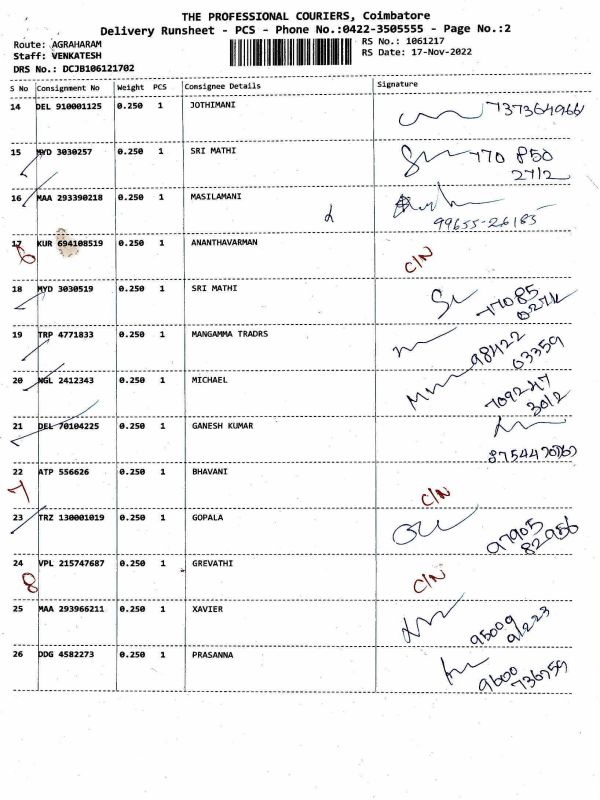 THE PROFESSIONAL COURIERS, Coimbatore
Delivery Runsheet - PCS - Phone No.:0422-3505555 - Page No.:2
Route: AGRAHARAM
Staff: VENKATESH
DRS No.: DCJB106121702
RS No.: 1061217
RS Date: 17-Nov-2022
S No Consignment No Weight PCS Consignee Details Signature
14 DEL 910001125 0.250 1 JOTHIMANI 7373649661
15 MYD 3030257 0.250 1 SRI MATHI 770 850
2712
16 MAA 293390218 0.250 1 MASILAMANI
99655-26185
17 KUR 694108519 0.250 1 ANANTHAVARMAN C/N
6
18 MYD 3030519 0.250 1 SRI MATHI 77085
02712
19 TRP 4771833 0.250 1 MANGAMMA TRADRS 98422
03359
20 NGL 2412343 0.250 1 MICHAEL 7092247
3012
21 DEL 70104225 0.250 1 GANESH KUMAR
22 ATP 556626 0.250 1 BHAVANI C/N
7
23 TRZ 130001019 0.250 1 GOPALA 97905
82956
24 VPL 215747687 0.250 1 GREVATHI C/N
8
25 MAA 293966211 0.250 1 XAVIER 95009
91223
26 DDG 4582273 0.250 1 PRASANNA 9600
736759